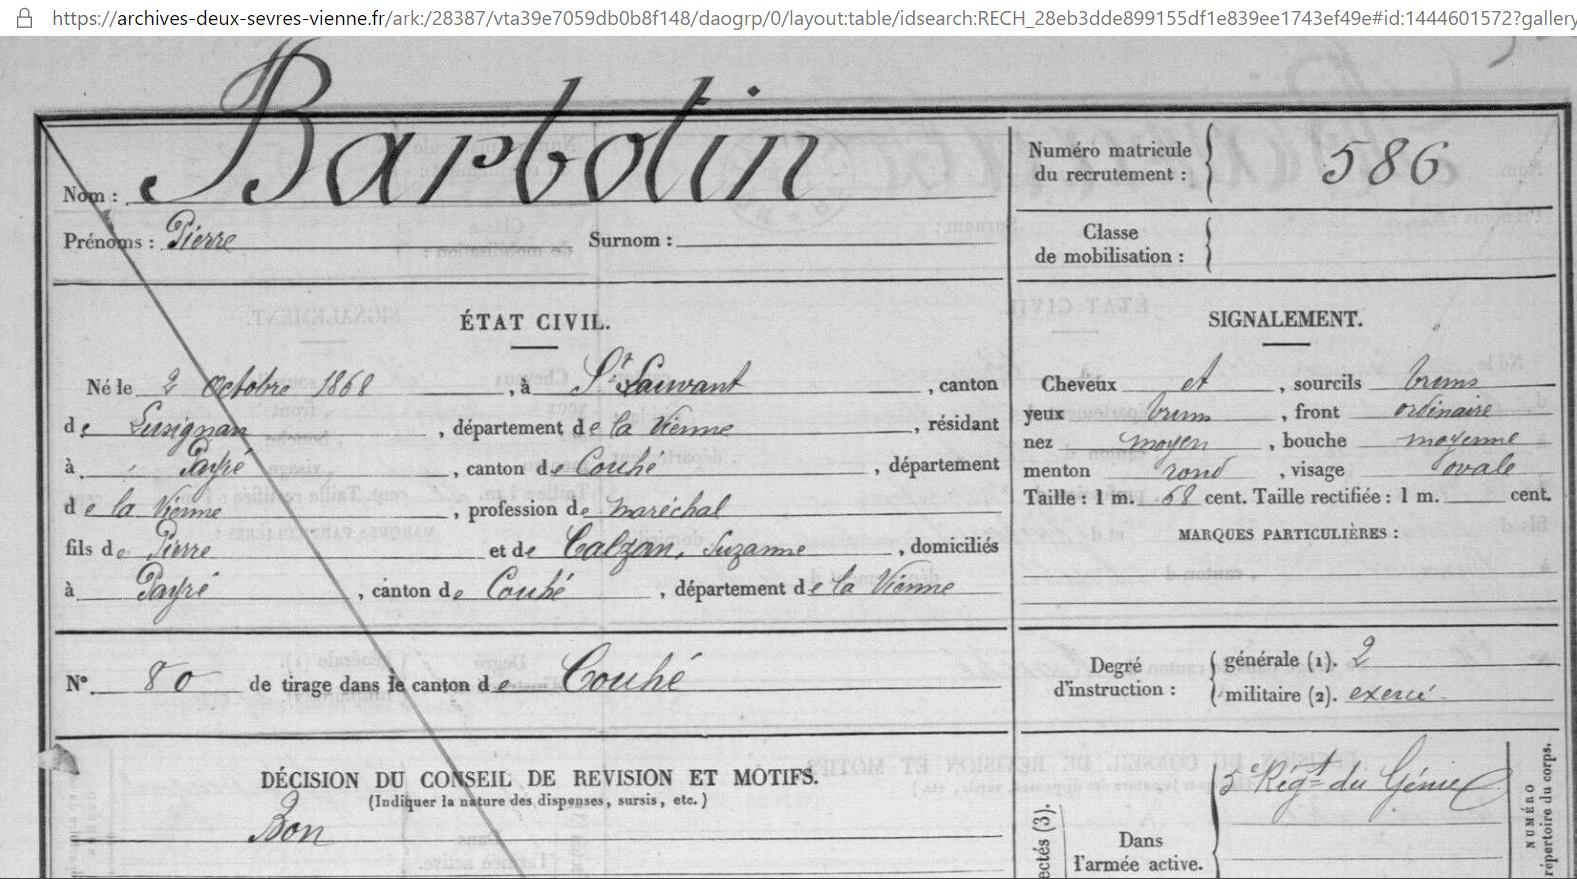 https://archives-deux-sevres-vienne.fr/ark:/28387/vta39e7059db0b8f148/daogrp/0/layout:table/idsearch:RECH_28eb3dde899155df1e839ee1743ef49e#id:1444601572?gallery
Nom : Barbotin
Prénoms : Pierre Surnom :
Numéro matricule
du recrutement : 586
Classe
de mobilisation :
ÉTAT CIVIL.
Né le 2 Octobre 1868, à St Sauvant, canton
de Lusignan, département de la Vienne, résidant
à Payré, canton de Couhé, département
de la Vienne, profession de maréchal
fils de Pierre et de Calzan, Suzanne, domiciliés
à Payré, canton de Couhé, département de la Vienne
N° 80 de tirage dans le canton de Couhé
DÉCISION DU CONSEIL DE REVISION ET MOTIFS.
(Indiquer la nature des dispenses, sursis, etc.)
Bon
SIGNALEMENT.
Cheveux et, sourcils bruns
yeux bruns, front ordinaire
nez moyen, bouche moyenne
menton rond, visage ovale
Taille : 1 m. 68 cent. Taille rectifiée : 1 m. cent.
MARQUES PARTICULIÈRES :
Degré
d'instruction :
générale (1). 2
militaire (2). exercé
ectés (3).
Dans
l'armée active.
5e Régt du Génie
NUMÉRO
répertoire du corps.